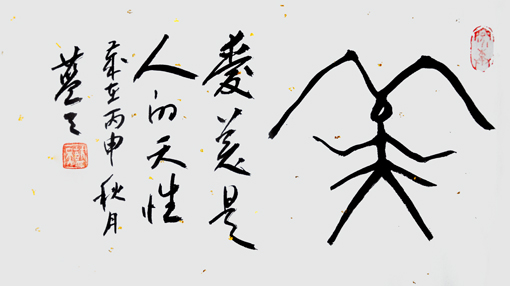 美
愛美是
人的天性
歲在丙申秋月
藍